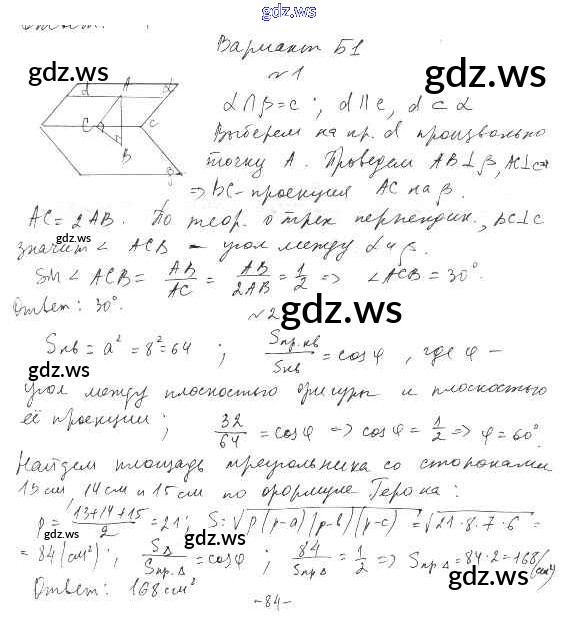 gdz.ws
Ответ:
Вариант Б1
gdz.ws
№1
d A α
α∩β=c ; d∥c, d⊂α
C c
Выберем на пр. d произвольно
B
точку A. Проведем AB⊥β, AC⊥c⇒
β
⇒ BC-проекция AC на β.
AC=2AB. По теор. о трех перпендик., BC⊥c
gdz.ws
значит ∠ ACB – угол между α и β.
Sin ∠ ACB = AB/AC = AB/2AB = 1/2 ⇒ ∠ACB = 30°.
gdz.ws
Ответ: 30°.
№2
Sкв = a² = 8² = 64 ; Sпр.кв/Sкв = cosφ, где φ –
gdz.ws
угол между плоскостью фигуры и плоскостью
её проекции ; 32/64 = cosφ ⇒ cosφ = 1/2 ⇒ φ = 60°.
gdz.ws
Найдем площадь треугольника со сторонами
13см, 14см и 15см по формуле Герона:
P = (13+14+15)/2 = 21 ; S = √p(p-a)(p-b)(p-c) = √21·8·7·6 =
gdz.ws
= 84(см²) ; SΔ/SпрΔ = cosφ ; 84/SпрΔ = 1/2 ⇒ SпрΔ = 84·2 = 168(см²)
gdz.ws
Ответ: 168см²
-84-
gdz.ws